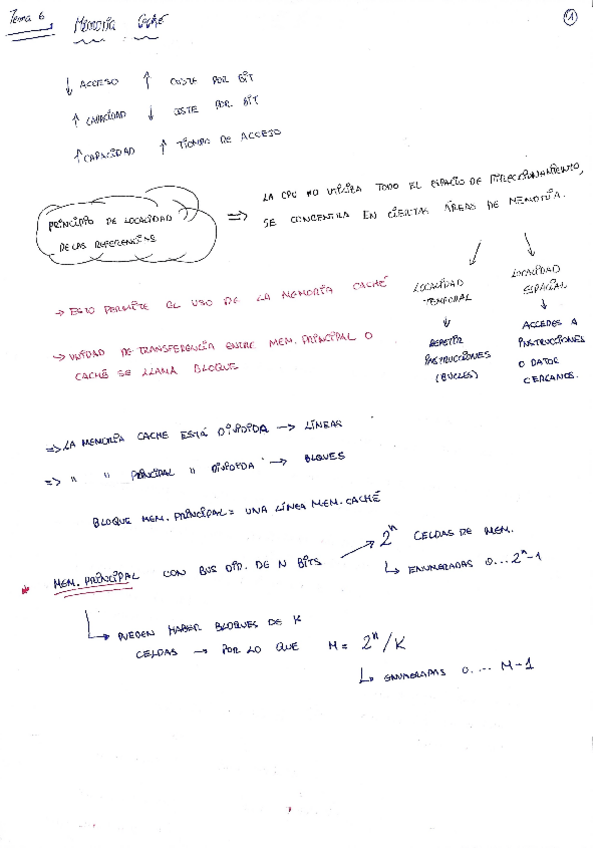 Tema 6
MEMORIA CACHÉ
1
↓ ACCESO ↑ COSTE POR BIT
↑ CAPACIDAD ↓ COSTE POR BIT
↑ CAPACIDAD ↑ TIEMPO DE ACCESO
PRINCIPIO DE LOCALIDAD
DE LAS REFERENCIAS
⇒ LA CPU NO UTILIZA TODO EL ESPACIO DE DIRECCIONAMIENTO,
SE CONCENTRA EN CIERTAS ÁREAS DE MEMORIA.
LOCALIDAD
TEMPORAL
↓
REPETIR
INSTRUCCIONES
(BUCLES)
LOCALIDAD
ESPACIAL
↓
ACCEDES A
INSTRUCCIONES
O DATOS
CERCANOS.
→ ESTO PERMITE EL USO DE LA MEMORIA CACHÉ
→ UNIDAD DE TRANSFERENCIA ENTRE MEM. PRINCIPAL O
CACHÉ SE LLAMA BLOQUE
⇒ LA MEMORIA CACHE ESTÁ DIVIDIDA → LÍNEAS
⇒ " " PRINCIPAL " DIVIDIDA → BLOQUES
BLOQUE MEM. PRINCIPAL = UNA LÍNEA MEM. CACHÉ
* MEM. PRINCIPAL CON BUS DIR. DE N BITS → 2^n CELDAS DE MEM.
↳ ENUMERADAS 0...2^n-1
↳ PUEDEN HABER BLOQUES DE K
CELDAS → POR LO QUE M = 2^n/K
↳ ENUMERADAS 0.... M-1